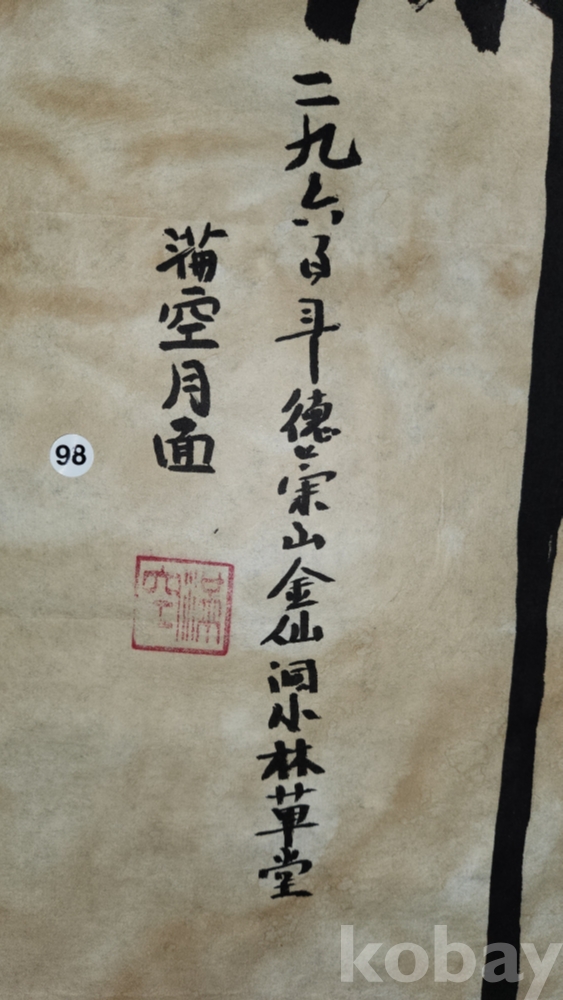 二九六百
德崇山金仙洞小林草堂
滿空月面
98
滿空
kobay